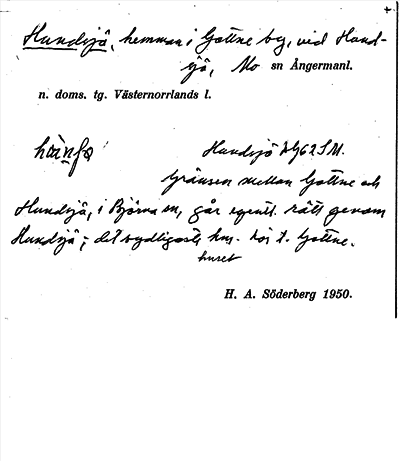 Hundsjö, hemman i Gottne by, vid Hund-
sjö, Mo sn Ångermanl.
n. doms. tg. Västernorrlands l.
Hundsjö
Gränsen mellan Gottne och
Hundsjö, i Björna sn, går egentl. rätt genom
Hundsjö; det sydligaste hör t. Gottne.
huset
H. A. Söderberg 1950.